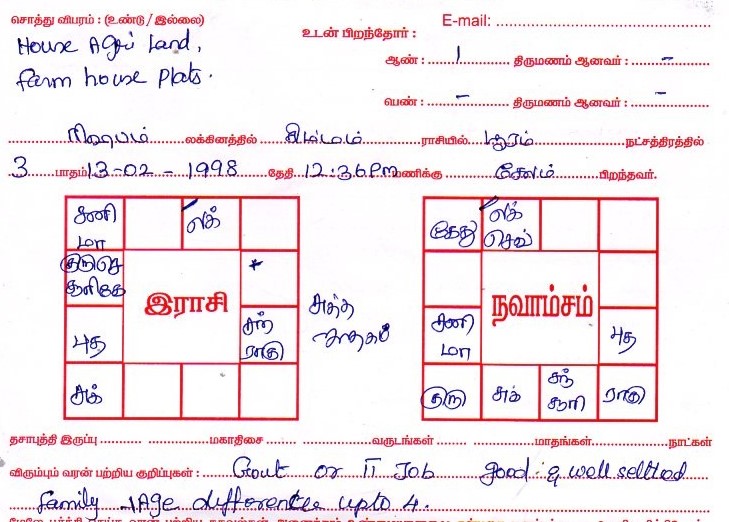 சொத்து விபரம் : (உண்டு / இல்லை)
E-mail:
House Agri Land,
உடன் பிறந்தோர் :
ஆண் : 1 திருமணம் ஆனவர் : -
farm house plats.
பெண் : - திருமணம் ஆனவர் : -
ரிஷபம் லக்கினத்தில் சிம்மம் ராசியில் பூரம் நட்சத்திரத்தில்
3 பாதம் 13-02-1998 தேதி 12:36Pm மணிக்கு சேலம் பிறந்தவர்.
சனி லக் கேது லக்
மா செவ்
குரு செ
சூரி கே
இராசி நவாம்சம்
சுத்த
ஜாதகம்
புத சந் சனி புத
ராகு மா
சுக் குரு சுக் சந் ராகு
சூரி
தசாபுத்தி இருப்பு மகாதிசை வருடங்கள் மாதங்கள் நாட்கள்
விரும்பும் வரன் பற்றிய குறிப்புகள் : Govt or IT Job good & well settled
family - Age difference upto 4.